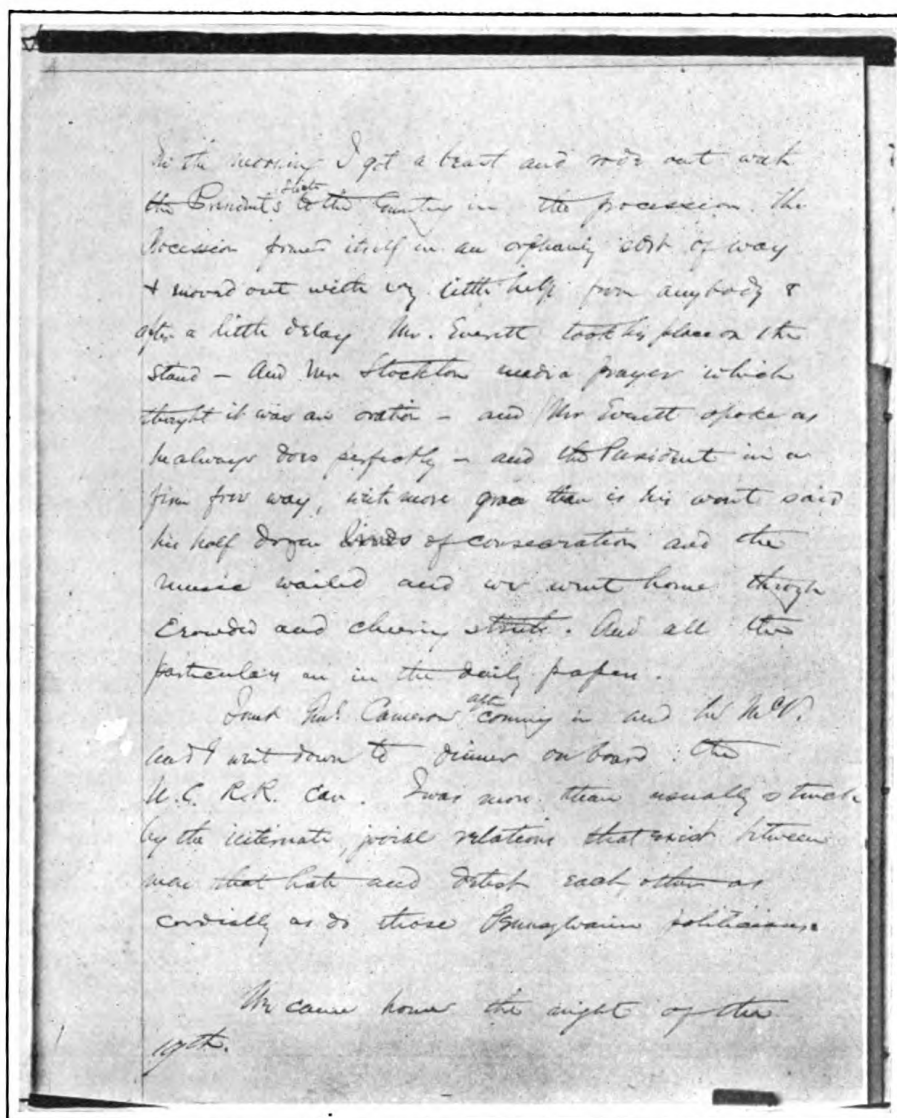 In the morning I got a beast and rode out with
the President's suite to the Cemetery in the procession. The
procession formed itself in an orphanly sort of way
& moved out with very little help from anybody &
after a little delay Mr. Everett took his place on the
stand – And Mr Stockton made a prayer which
thought it was an oration – and Mr Everett spoke as
he always does perfectly – and the President in a
firm free way, with more grace than is his wont said
his half dozen lines of consecration and the
music wailed and we went home through
crowded and cheering streets. And all the
particulars are in the daily papers.
I met Genl Cameron after coming in and he McV.
and I went down to dinner on board the
N.C. R.R. car. I was more than usually struck
by the intimate, jovial relations that exist between
men that hate and detest each other as
cordially as do those Pennsylvania politicians.
We came home the night of the
19th.